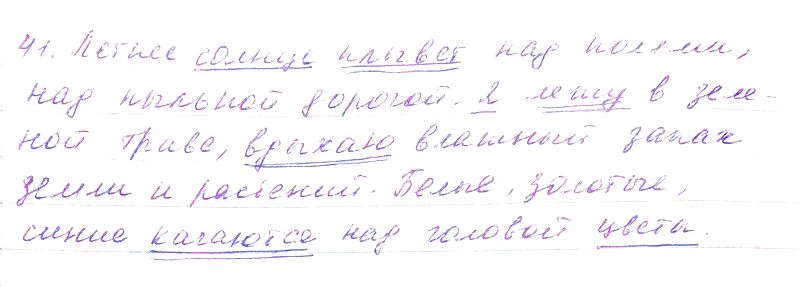 41. Летнее солнце плывет над полями,
над пыльной дорогой. Я лежу в зеле-
ной траве, вдыхаю влажный запах
земли и растений. Белые, золотые,
синие качаются над головой цветы.